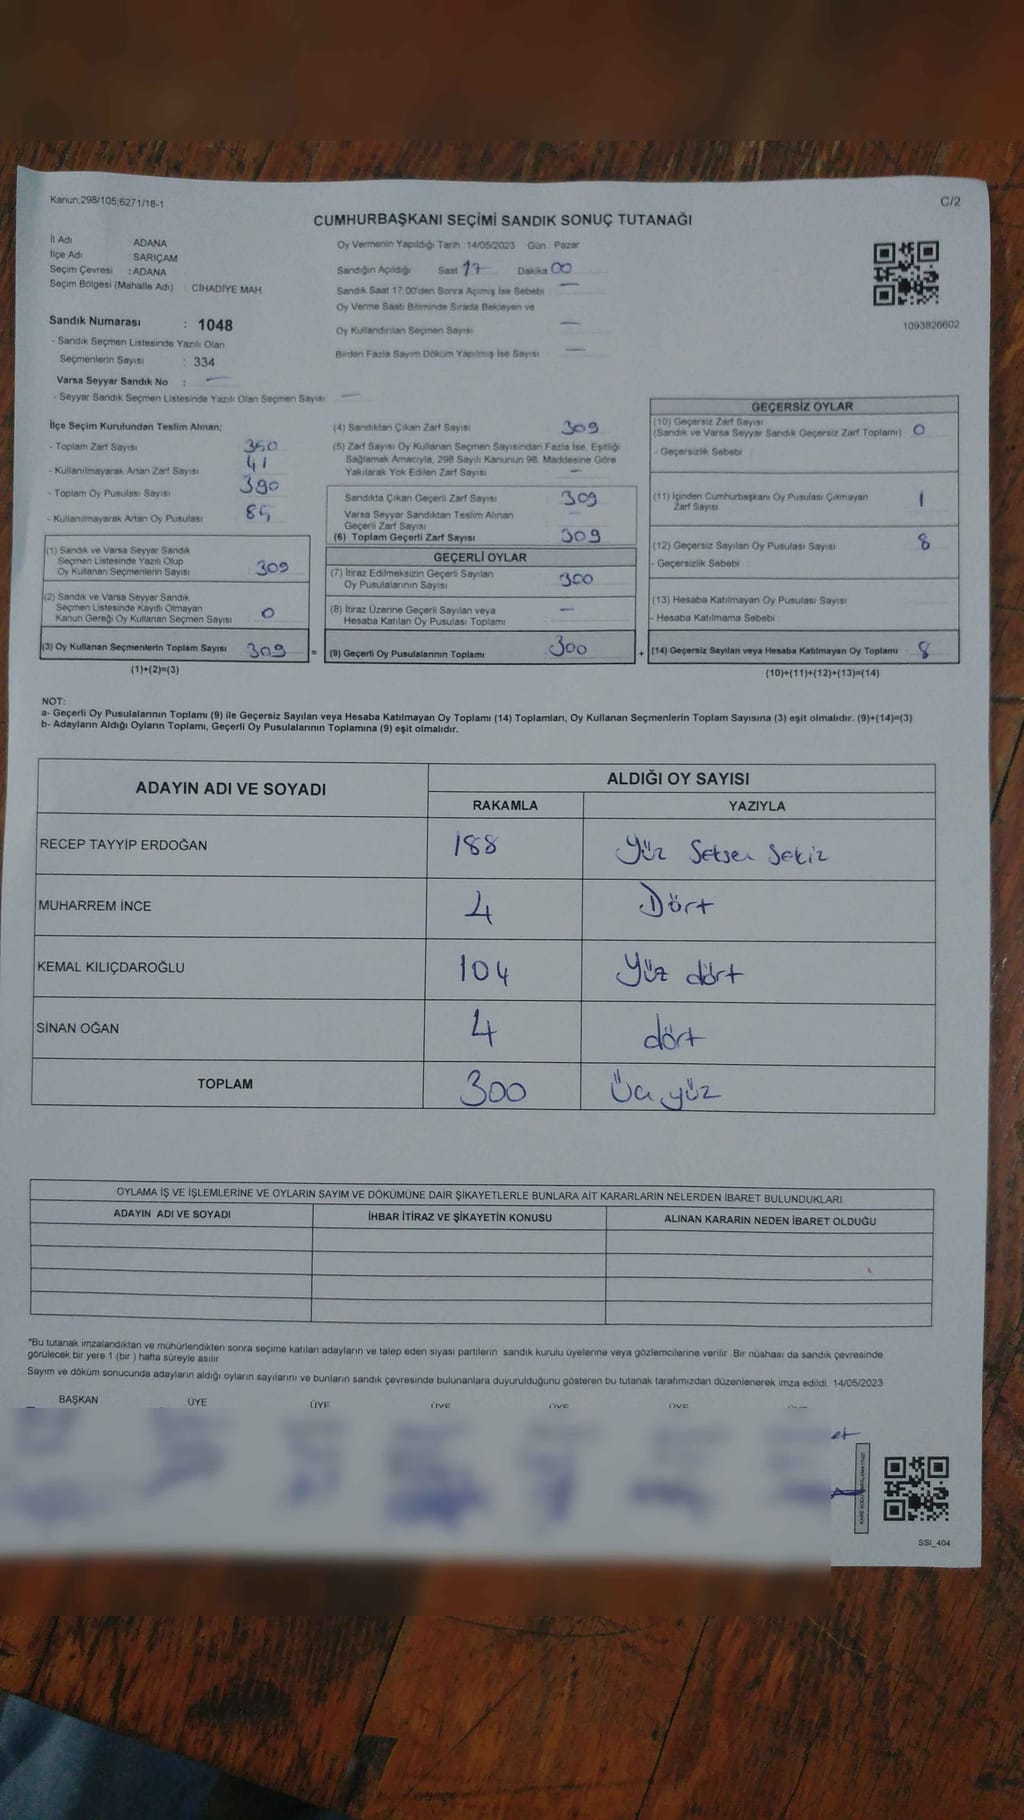 Kanun:298/105;6271/18-1
C/2
CUMHURBAŞKANI SEÇİMİ SANDIK SONUÇ TUTANAĞI
İl Adı : ADANA
İlçe Adı : SARIÇAM
Seçim Çevresi : ADANA
Seçim Bölgesi (Mahalle Adı) : CİHADİYE MAH
Sandık Numarası : 1048
- Sandık Seçmen Listesinde Yazılı Olan
Seçmenlerin Sayısı : 334
Varsa Seyyar Sandık No : —
- Seyyar Sandık Seçmen Listesinde Yazılı Olan Seçmen Sayısı —
Oy Vermenin Yapıldığı Tarih :14/05/2023 Gün : Pazar
Sandığın Açıldığı Saat 17 Dakika 00
Sandık Saat 17:00'den Sonra Açımış İse Sebebi —
Oy Verme Saati Bitiminde Sırada Bekleyen ve
Oy Kullandırılan Seçmen Sayısı —
Birden Fazla Sayım Döküm Yapılmış İse Sayısı —
1093826602
İlçe Seçim Kurulundan Teslim Alınan;
- Toplam Zarf Sayısı 350
- Kullanılmayarak Artan Zarf Sayısı 41
- Toplam Oy Pusulası Sayısı 390
- Kullanılmayarak Artan Oy Pusulası
(1) Sandık ve Varsa Seyyar Sandık
Seçmen Listesinde Yazılı Olup
Oy Kullanan Seçmenlerin Sayısı 309
(2) Sandık ve Varsa Seyyar Sandık
Seçmen Listesinde Kayıtlı Olmayan
Kanun Gereği Oy Kullanan Seçmen Sayısı 0
(3) Oy Kullanan Seçmenlerin Toplam Sayısı 309 =
(1)+(2)=(3)
(4) Sandıktan Çıkan Zarf Sayısı 309
(5) Zarf Sayısı Oy Kullanan Seçmen Sayısından Fazla İse, Eşitliği
Sağlamak Amacıyla, 298 Sayılı Kanunun 98. Maddesine Göre
Yakılarak Yok Edilen Zarf Sayısı —
Sandıkta Çıkan Geçerli Zarf Sayısı 309
Varsa Seyyar Sandıktan Teslim Alınan
Geçerli Zarf Sayısı —
(6) Toplam Geçerli Zarf Sayısı 309
GEÇERLİ OYLAR
(7) İtiraz Edilmeksizin Geçerli Sayılan
Oy Pusulalarının Sayısı 300
(8) İtiraz Üzerine Geçerli Sayılan veya
Hesaba Katılan Oy Pusulası Toplamı —
(9) Geçerli Oy Pusulalarının Toplamı 300 +
GEÇERSİZ OYLAR
(10) Geçersiz Zarf Sayısı
(Sandık ve Varsa Seyyar Sandık Geçersiz Zarf Toplamı) 0
- Geçersizlik Sebebi :
(11) İçinden Cumhurbaşkanı Oy Pusulası Çıkmayan
Zarf Sayısı 1
(12) Geçersiz Sayılan Oy Pusulası Sayısı 8
- Geçersizlik Sebebi :
(13) Hesaba Katılmayan Oy Pusulası Sayısı
- Hesaba Katılmama Sebebi :
(14) Geçersiz Sayılan veya Hesaba Katılmayan Oy Toplamı 8
(10)+(11)+(12)+(13)=(14)
NOT:
a- Geçerli Oy Pusulalarının Toplamı (9) ile Geçersiz Sayılan veya Hesaba Katılmayan Oy Toplamı (14) Toplamları, Oy Kullanan Seçmenlerin Toplam Sayısına (3) eşit olmalıdır. (9)+(14)=(3)
b- Adayların Aldığı Oyların Toplamı, Geçerli Oy Pusulalarının Toplamına (9) eşit olmalıdır.
ADAYIN ADI VE SOYADI
ALDIĞI OY SAYISI
RAKAMLA YAZIYLA
RECEP TAYYİP ERDOĞAN 188 Yüz Seksen Sekiz
MUHARREM İNCE 4 Dört
KEMAL KILIÇDAROĞLU 104 Yüz dört
SİNAN OĞAN 4 dört
TOPLAM 300 Üç yüz
OYLAMA İŞ VE İŞLEMLERİNE VE OYLARIN SAYIM VE DÖKÜMÜNE DAİR ŞİKAYETLERLE BUNLARA AİT KARARLARIN NELERDEN İBARET BULUNDUKLARI
ADAYIN ADI VE SOYADI İHBAR İTİRAZ VE ŞİKAYETİN KONUSU ALINAN KARARIN NEDEN İBARET OLDUĞU
*Bu tutanak imzalandıktan ve mühürlendikten sonra seçime katılan adayların ve talep eden siyasi partilerin sandık kurulu üyelerine veya gözlemcilerine verilir. Bir nüshası da sandık çevresinde
görülecek bir yere 1 (bir ) hafta süreyle asılır.
Sayım ve döküm sonucunda adayların aldığı oyların sayılarını ve bunların sandık çevresinde bulunanlara duyurulduğunu gösteren bu tutanak tarafımızdan düzenlenerek imza edildi. 14/05/2023
BAŞKAN ÜYE ÜYE ÜYE ÜYE ÜYE
SSI_404